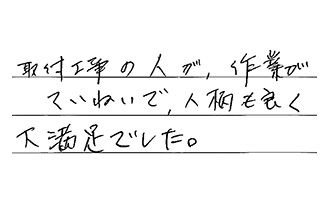 取付工事の人が、作業が
ていねいで、人柄も良く
大満足でした。